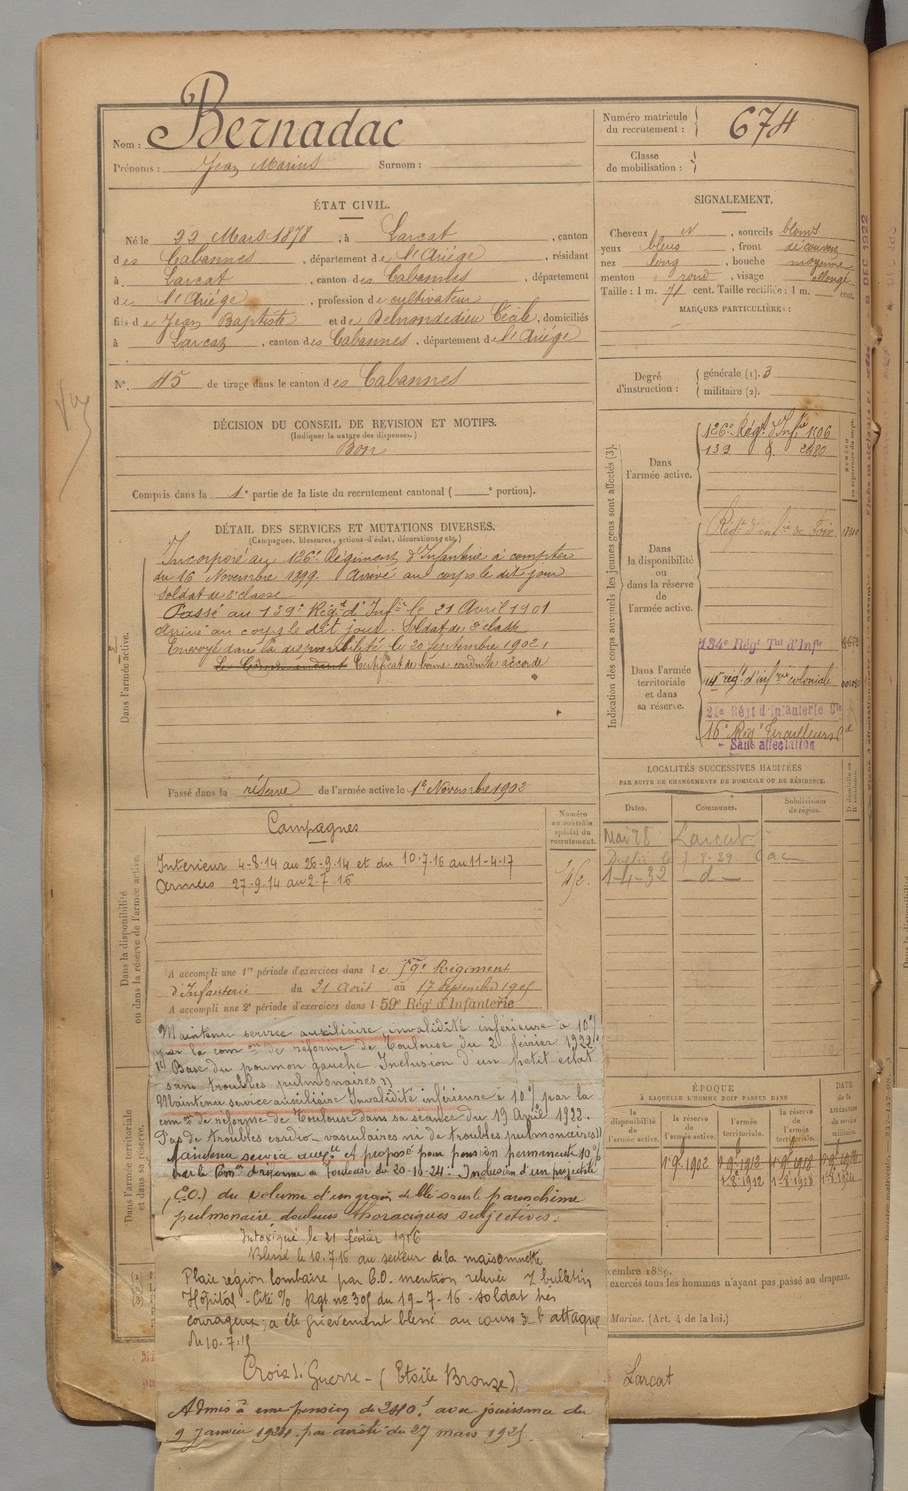 Nom : Bernadac
Prénoms : Jean Marius Surnom :
ÉTAT CIVIL.
Né le 22 Mars 1878, à Larcat, canton
des Cabannes, département de l'Ariége, résidant
à Larcat, canton des Cabannes, département
de l'Ariége, profession de cultivateur
fils de Jean Baptiste et de Cécile, domiciliés
à Larcat, canton des Cabannes, département de l'Ariége
N° 45 de tirage dans le canton des Cabannes
DÉCISION DU CONSEIL DE REVISION ET MOTIFS.
(Indiquer la nature des dispenses.)
Bon
Compris dans la 1e partie de la liste du recrutement cantonal ( e portion).
DÉTAIL DES SERVICES ET MUTATIONS DIVERSES.
(Campagnes, blessures, actions d'éclat, décorations, etc.)
Dans l'armée active.
Incorporé au 126e Régiment d'Infanterie à compter
du 16 Novembre 1899. Arrivé au corps le dit jour
soldat de 2e classe
Passé au 139e Régt d'Infie le 21 Avril 1901
Arrivé au corps le dit jour. Soldat de 2e classe
Envoyé dans la disponibilité le 20 Septembre 1902,
Le Commandant Certificat de bonne conduite accordé
Passé dans la réserve de l'armée active le 1er Novembre 1902
Dans la disponibilité
ou dans la réserve de l'armée active.
Campagnes
Numéro
au contrôle
spécial du
recrutement.
Intérieur 4-8-14 au 26-9-14 et du 10.7.16 au 11-4-17
Armées 27-9-14 au 2-7-16
A accompli une 1re période d'exercices dans le 59e Régiment
d'Infanterie du 21 Août au 17 Septembre
A accompli une 2e période d'exercices dans l 59e Régt d'Infanterie
Dans l'armée territoriale
et dans sa réserve.
Maintenu service auxiliaire, invalidité inférieure à 10%
par la comon de réforme de Toulouse du 2 février 1922
Base du poumon gauche Inclusion d'un petit éclat
sans troubles pulmonaires
Maintenu service auxiliaire Invalidité inférieure à 10% par la
comon de réforme de Toulouse dans sa séance du 19 Avril 1922.
Pas de troubles cardio-vasculaires ni de troubles pulmonaires
Maintenu service auxre et proposé pour pension permanente 10%
par la Comon de réforme de Toulouse du 20-10-24: Inclusion d'un projectile
(E.O.) du volume d'un grain de blé sous le parenchime
pulmonaire douleurs thoraciques subjectives.
Intoxiqué le 21 février 1916
Blessé le 10.7.16 au secteur de la maisonnette
Plaie région lombaire par E.O. mention relevée bulletin
Hôpital - Cité % Rgt no 305 du 19-7-16 - soldat très
courageux, a été grièvement blessé au cours de l'attaque
du 10.7.
Croix de Guerre - (Etoile Bronze)
Admis à une pension de 240f avec jouissance du
9 Janvier 1924 par arrêté du 27 mars 1925.
Numéro matricule
du recrutement : 674
Classe
de mobilisation :
SIGNALEMENT.
Cheveux N, sourcils blonds
yeux bleus, front découvert
nez long, bouche moyenne
menton rond, visage allongé
Taille : 1 m. 71 cent. Taille rectifiée : 1 m. cent.
MARQUES PARTICULIÈRES :
Degré
d'instruction :
générale (1). 3
militaire (2).
Indication des corps auxquels les jeunes gens sont affectés (3).
Dans
l'armée active.
126e Régt d'Infie 1506
139 d. 2480
Dans
la disponibilité
ou
dans la réserve de
l'armée active.
Régt d'infie de Foix
Dans l'armée
territoriale
et dans
sa réserve.
134e Régt Tal d'Infie
régt d'infrie coloniale
Régt d'Infanterie Cle
16e Régt Tirailleurs
Sans affectation
LOCALITÉS SUCCESSIVES HABITÉES
PAR SUITE DE CHANGEMENTS DE DOMICILE OU DE RÉSIDENCE.
Dates. Communes. Subdivision
de région.
Larcat
1-4-32 - d -
ÉPOQUE
À LAQUELLE L'HOMME DOIT PASSER DANS
DATE
de la
libération
du service
militaire.
la
disponibilité
de
l'armée active.
la réserve
de
l'armée active.
l'armée
territoriale.
la réserve
de
l'armée
territoriale.
1er 9bre 1902
exercés tous les hommes n'ayant pas passé au drapeau.
Marine. (Art. 4 de la loi.)
Larcat